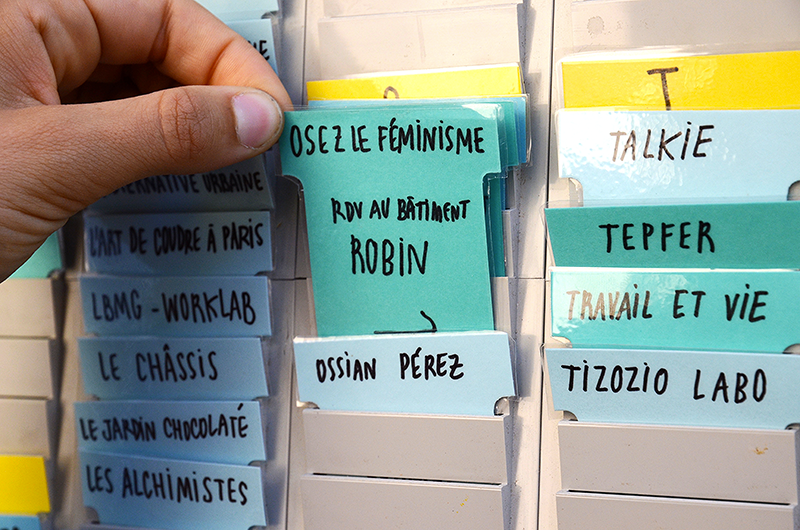 ALTERNATIVE URBAINE
L'ART DE COUDRE À PARIS
LBMG - WORKLAB
LE CHÂSSIS
LE JARDIN CHOCOLATÉ
LES ALCHIMISTES
OSEZ LE FÉMINISME
RDV AU BÂTIMENT
ROBIN
OSSIAN PÉREZ
T
TALKIE
TEPFER
TRAVAIL ET VIE
TIZOZIO LABO